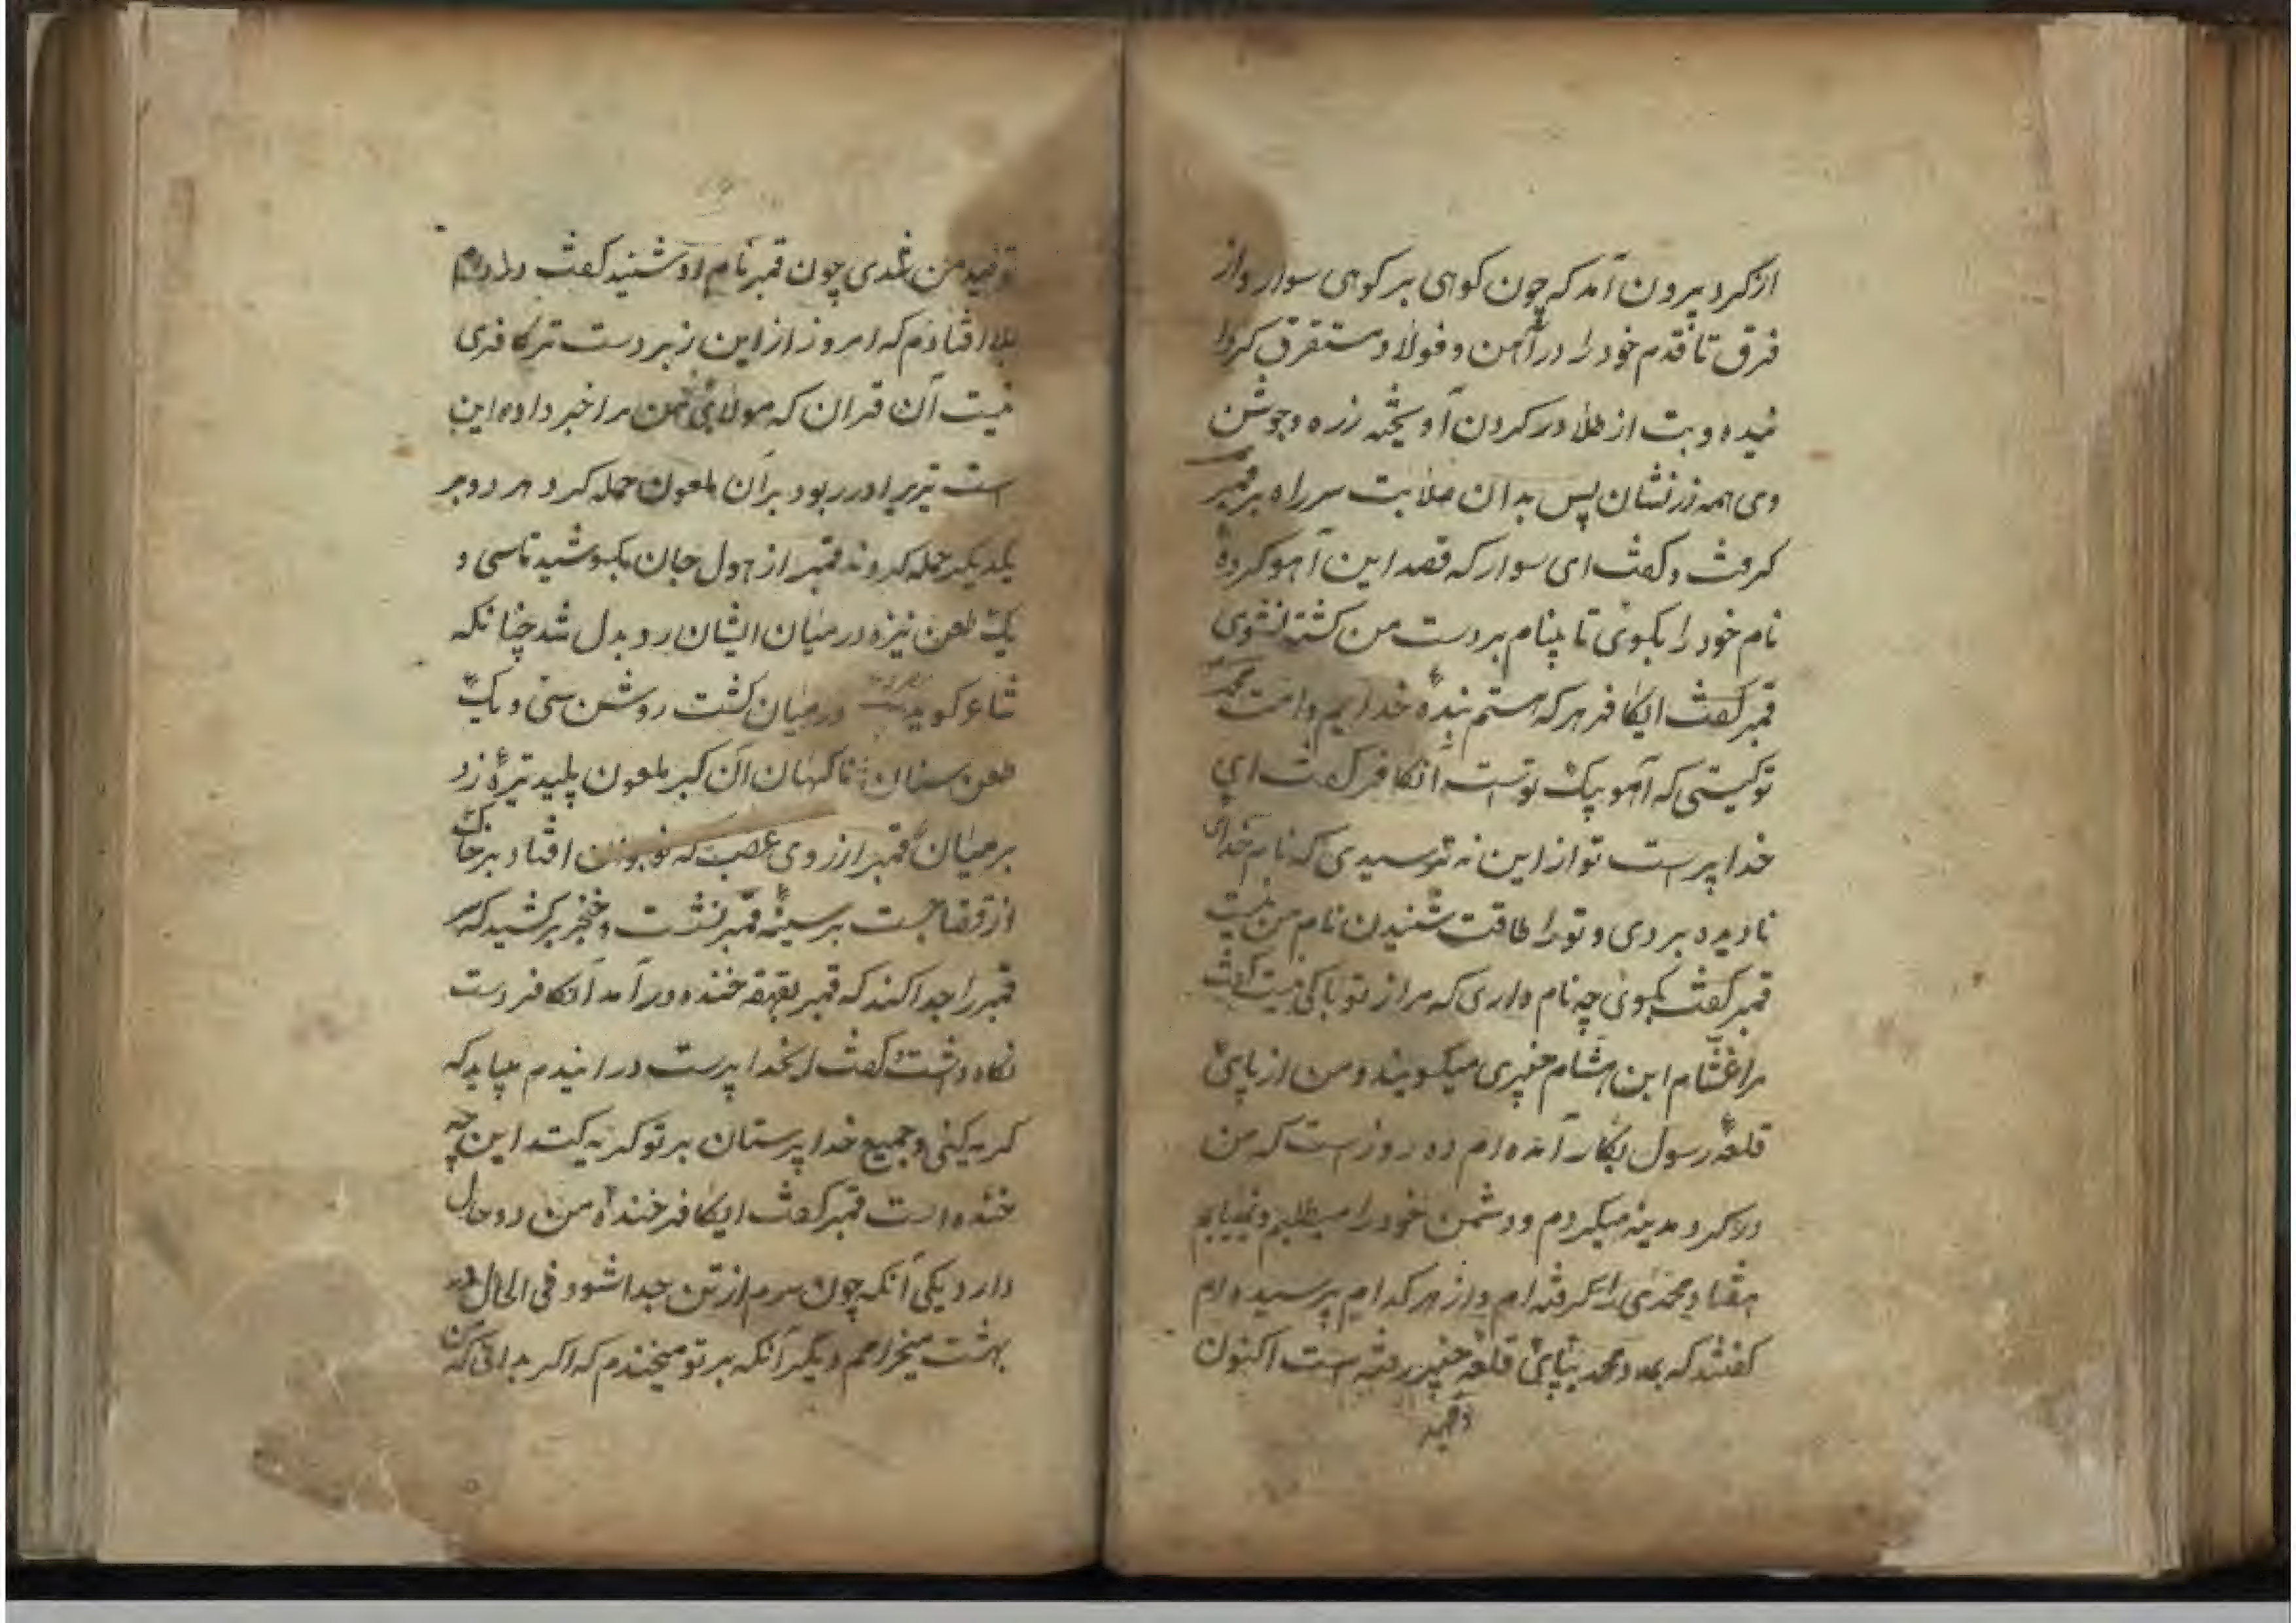 از گرد بیرون آمد که چون کوهی بر کوهی سوار و از
فرق تا قدم خود را در آهن و فولاد مستغرق کردا
نیده و بت از طلا در کردن آویخته زره و جوشن
وی همه زرنشان پس بدان صلابت سر راه بر قمبر
کرفت و کفت ای سوار که قصد این آهو کردهٔ
نام خود را بکوئی تا بینام بر دست من کشته نشوی
قمبر کفت ایکافر هر که هستم بندهٔ خدایم و امت محمد
تو کیستی که آهو پیک توست آنکافر کفت ای
خدا پرست تو از این نه ترسیدی که نام خدای
نادیده بردی و تو را طاقت شنیدن نام من نیست
قمبر کفت بکوئی چه نام داری که مرا از تو باکی نیست کفت
مرا غشام ابن هشام خیبری میکویند و من از پای
قلعهٔ رسول بکار آمده ام ده روز است که من
در کرد مدینه میکردم و دشمن خود را میطلبم و نمییابم
هفتاد محمدی را بکرفته ام و از هر کدام پرسیده ام
کفتند که بمدد محمد بپای قلعه خیبر رفته است اکنون
تو صید من شدی چون قمبر نام او شنید کفت در دام
بلا افتادم که امروز از این زبردست تر کافری
نیست آن قران که مولای من مرا خبر داده این
است نیزه در ربود بر آن ملعون حمله کرد هر دو بر
یکدیکر حمله کردند قمبر از هول جان بکوشید تا سی و
یک طعن نیزه در میان ایشان رد و بدل شد چنانکه
شاعر کوید در میان کشت روشن سی و یک
طعن سنان ناکهان آن کبر ملعون پلید نیزهٔ زد
بر میان قمبر از روی غضب که نوجوان افتاد بر خاک
از قضا جست بر سینهٔ قمبر نشست و خنجر بر کشید که سر
قمبر را جدا کند که قمبر بقهقه خنده در آمد آنکافر دست
نکاه داشت و کفت ایخدا پرست در اندم میباید که
کریه کنی و جمیع خدا پرستان بر تو کریه کنند این چه
خنده است قمبر کفت ایکافر خندهٔ من دو حال
دارد یکی آنکه چون سرم از تن جدا شود فی الحال در
بهشت میخرامم دیگر آنکه بر تو میخندم که اکر بدانی که من